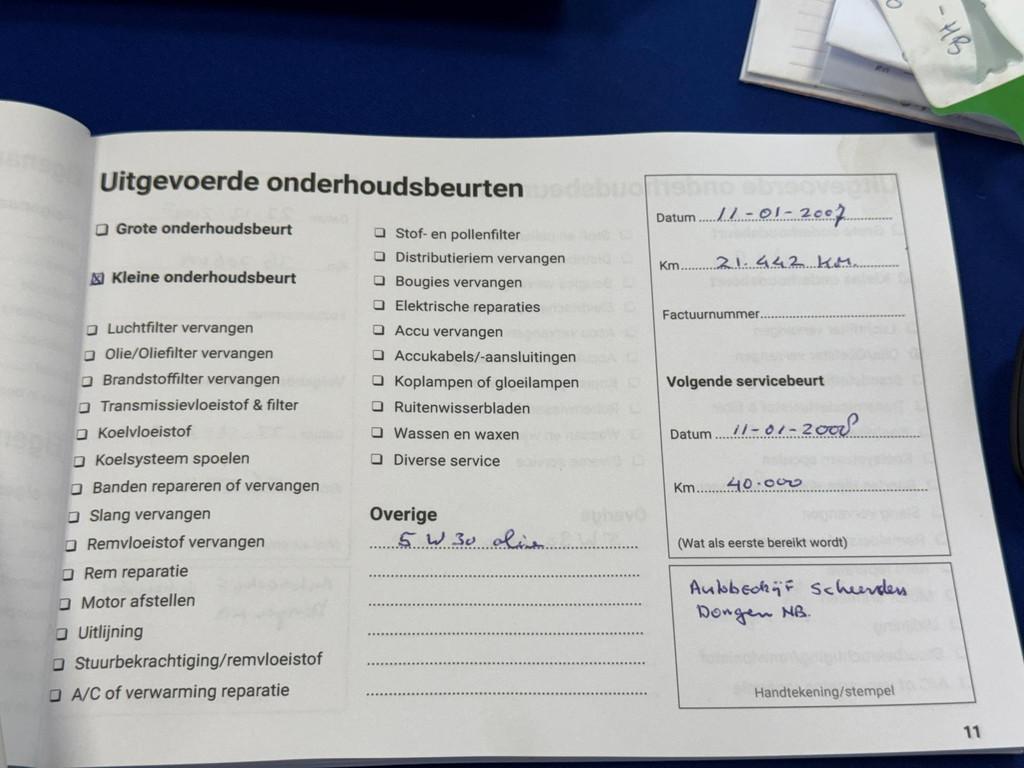 - HB
Uitgevoerde onderhoudsbeurten
Grote onderhoudsbeurt
Kleine onderhoudsbeurt
Luchtfilter vervangen
Olie/Oliefilter vervangen
Brandstoffilter vervangen
Transmissievloeistof & filter
Koelvloeistof
Koelsysteem spoelen
Banden repareren of vervangen
Slang vervangen
Remvloeistof vervangen
Rem reparatie
Motor afstellen
Uitlijning
Stuurbekrachtiging/remvloeistof
A/C of verwarming reparatie
Stof- en pollenfilter
Distributieriem vervangen
Bougies vervangen
Elektrische reparaties
Accu vervangen
Accukabels/-aansluitingen
Koplampen of gloeilampen
Ruitenwisserbladen
Wassen en waxen
Diverse service
Overige
5 W 30 olie
Datum 11-01-2007
Km 21.442 KM.
Factuurnummer
Volgende servicebeurt
Datum 11-01-2008
Km 40.000
(Wat als eerste bereikt wordt)
Autobedrijf Scheerders
Dongen NB.
Handtekening/stempel
11